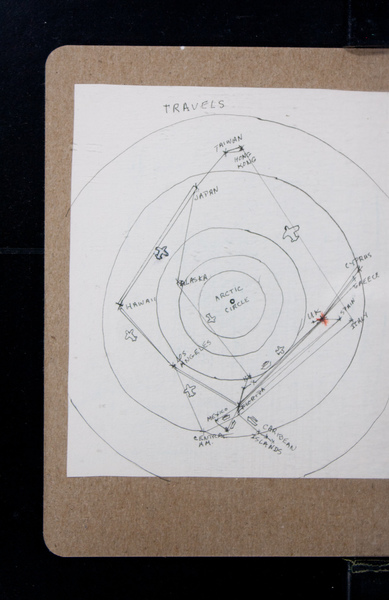 TRAVELS
TAIWAN
HONG
KONG
JAPAN
CYPRUS
GREECE
ALASKA
ARCTIC
CIRCLE
HAWAII
UK
SPAIN
ITALY
LOS
ANGELES
FLORIDA
MEXICO
CENTRAL
AM.
CARIBEAN
ISLANDS